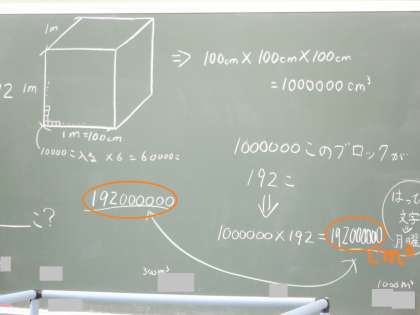 1m
⇒ 100cm × 100cm × 100cm
1m
= 1000000 cm³
1m = 100cm
10000こ入る × 6 = 60000こ
1000000このブロックが
192こ
192000000
⇓
1000000 × 192 = 192000000
cm³
こ?
はって
文字
月曜
300m³
1000m³